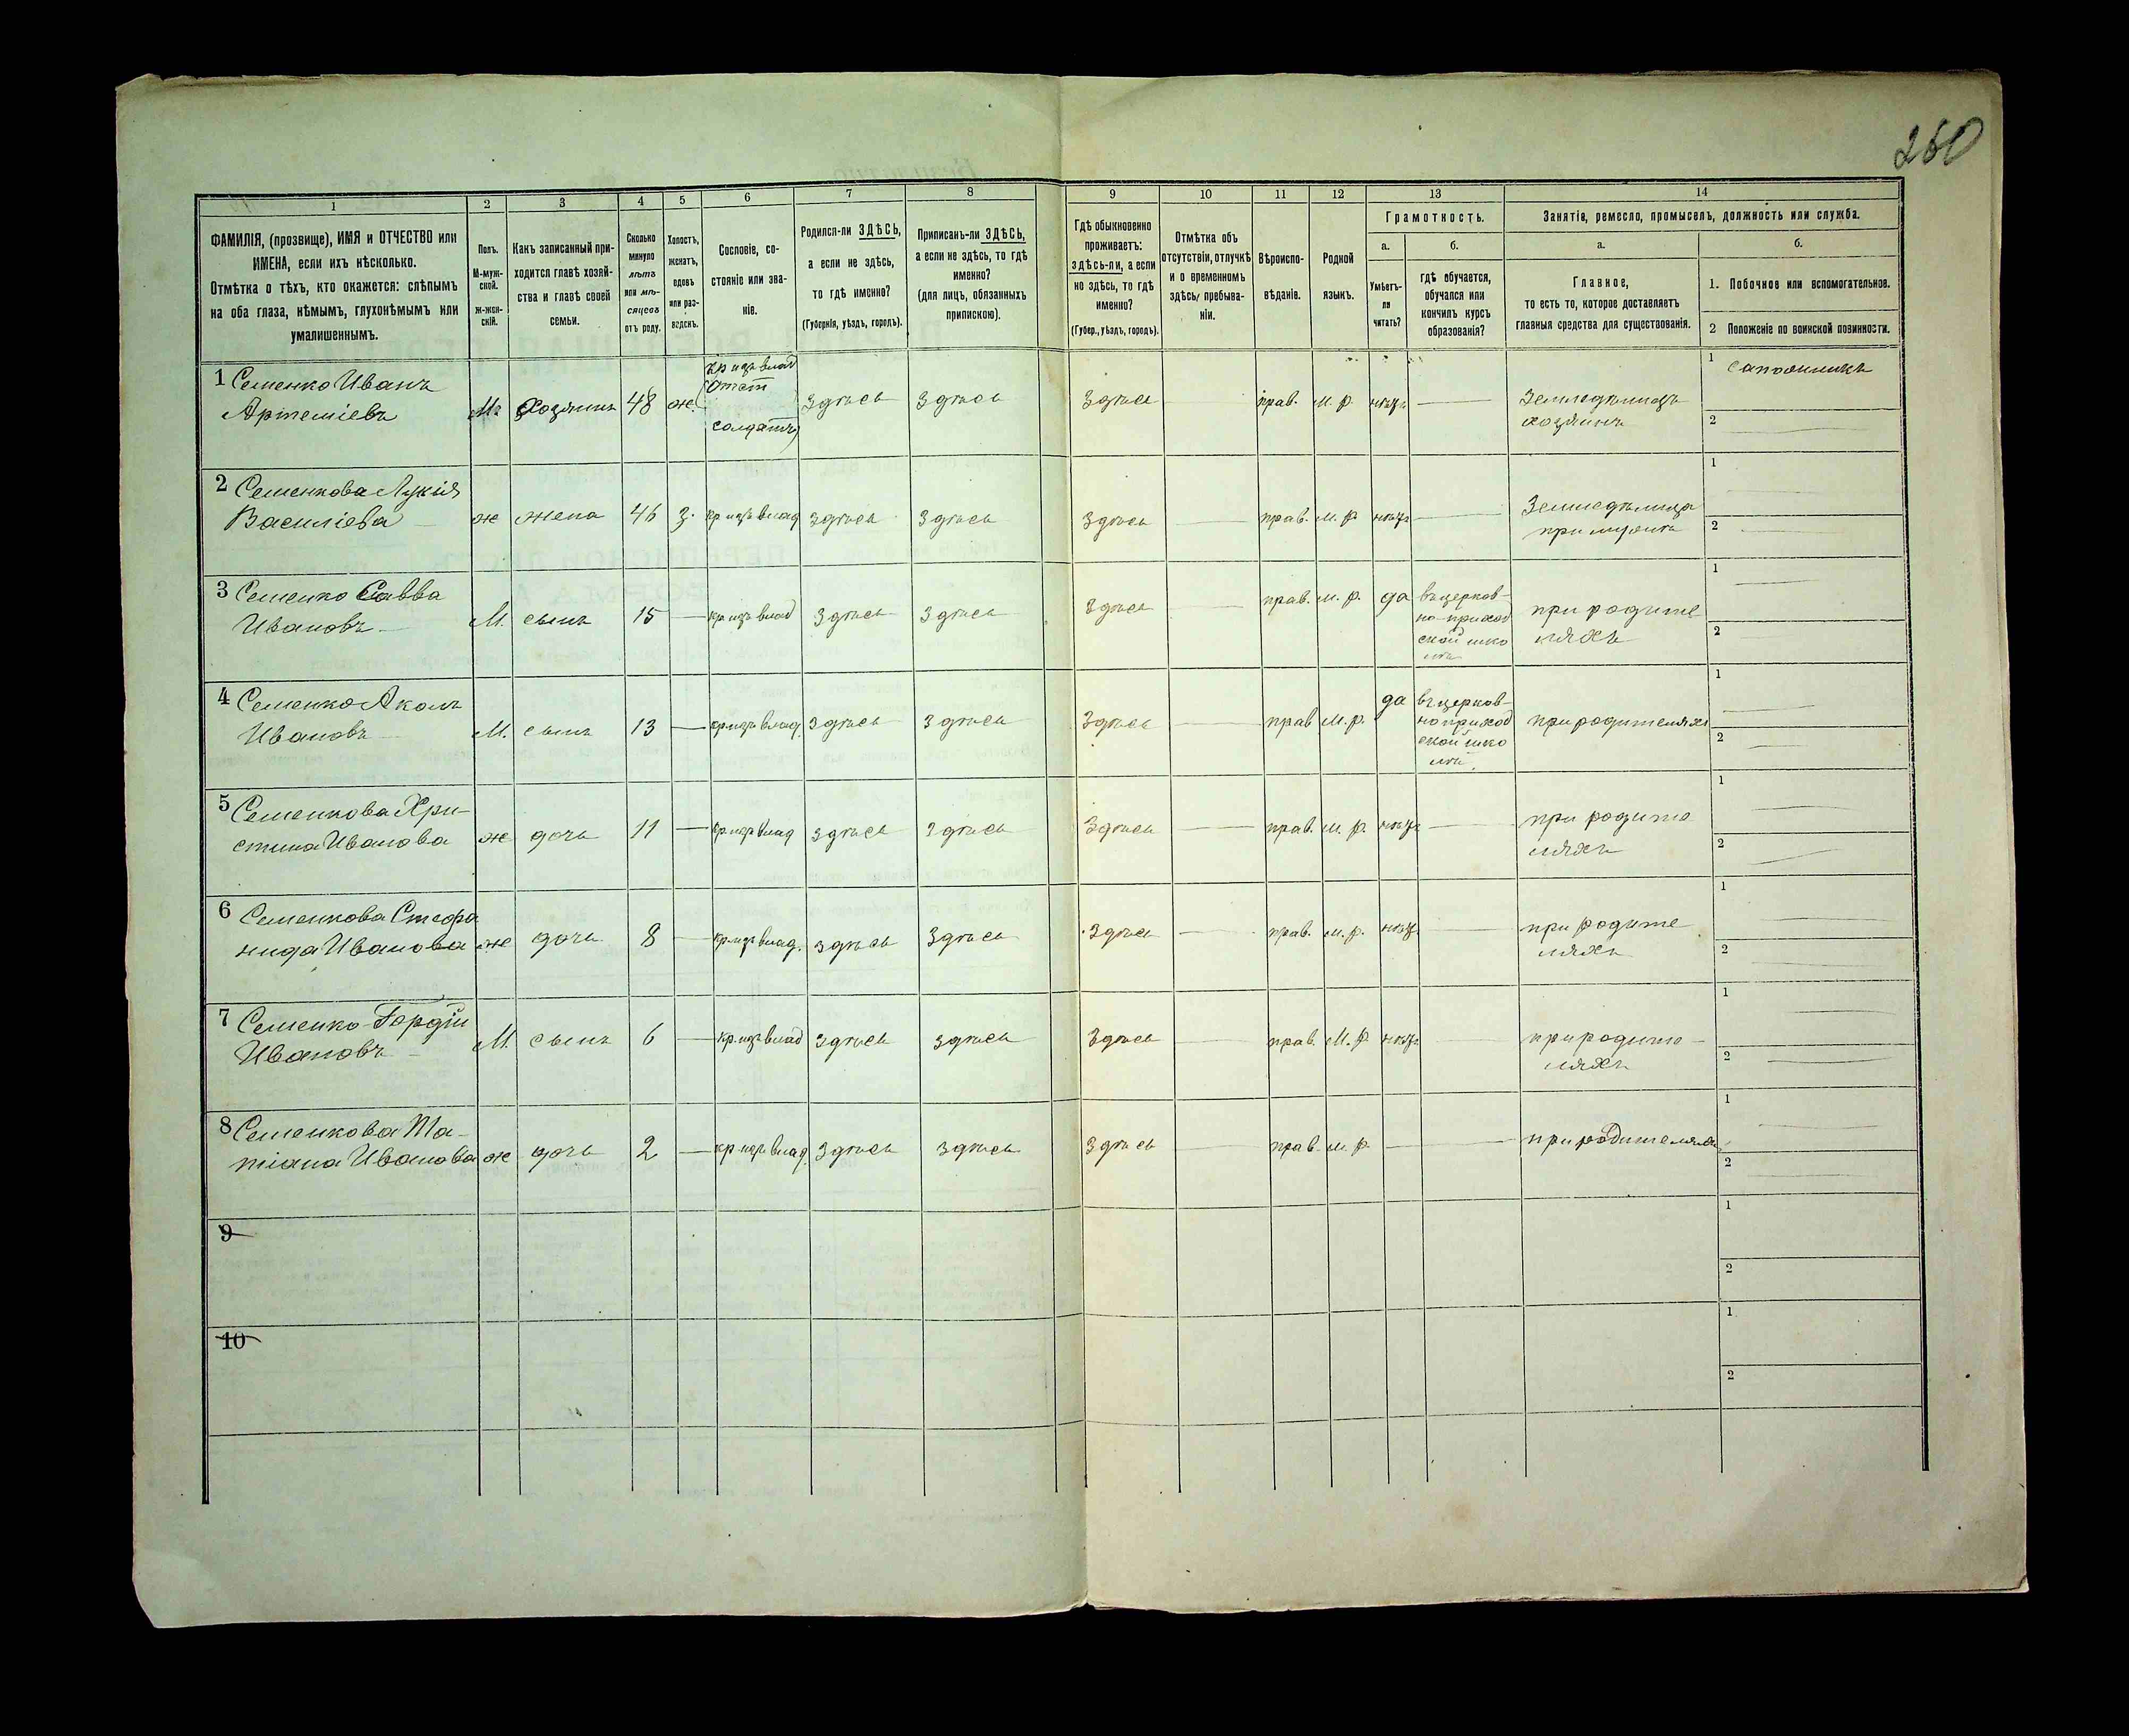 260
1 2 3 4 5 6 7 8 9 10 11 12 13 14
ФАМИЛІЯ, (прозвище), ИМЯ и ОТЧЕСТВО или
ИМЕНА, если ихъ нѣсколько.
Отмѣтка о тѣхъ, кто окажется: слѣпымъ
на оба глаза, нѣмымъ, глухонѣмымъ или
умалишеннымъ.
Полъ.
М-муж-
ской.
ж-жен-
скій.
Какъ записанный при-
ходится главѣ хозяй-
ства и главѣ своей
семьи.
Сколько
минуло
лѣтъ
или мѣ-
сяцевъ
отъ роду.
Холостъ,
женатъ,
вдовъ
или раз-
веденъ.
Сословіе, со-
стояніе или зва-
ніе.
Родился-ли ЗДѢСЬ,
а если не здѣсь,
то гдѣ именно?
(Губернія, уѣздъ, городъ).
Приписанъ-ли ЗДѢСЬ,
а если не здѣсь, то гдѣ
именно?
(для лицъ, обязанныхъ
припискою).
Гдѣ обыкновенно
проживаетъ:
здѣсь-ли, а если
не здѣсь, то гдѣ
именно?
(Губер., уѣздъ, городъ).
Отмѣтка объ
отсутствіи, отлучкѣ
и о временномъ
здѣсь пребыва-
ніи.
Вѣроиспо-
вѣданіе.
Родной
языкъ.
Грамотность.
а. б.
Умѣетъ-
ли
читать?
гдѣ обучается,
обучался или
кончилъ курсъ
образованія?
Занятіе, ремесло, промыселъ, должность или служба.
а. б.
Главное,
то есть то, которое доставляетъ
главныя средства для существованія.
1. Побочное или вспомогательное.
2 Положеніе по воинской повинности.
1 Семенко Иванъ
Артеміевъ
М. Хозяинъ 48 ж.
кр изъ влад
(отст
солдатъ)
здѣсь здѣсь здѣсь прав. м. р. нѣтъ
Земледѣлецъ
хозяинъ
1 Сапожникъ
2
2 Семенкова Лукія
Василіева
ж жена 46 з. кр изъ влад здѣсь здѣсь здѣсь прав. м. р. нѣтъ
Земледѣлица
при мужѣ
1
2
3 Семенко Савва
Ивановъ
М. сынъ 15 кр изъ влад здѣсь здѣсь здѣсь прав. м. р. да
въ церков-
но-приход
ской шко
лѣ
при родите
ляхъ
1
2
4 Семенко
Ивановъ
М. сынъ 13 кр изъ влад. здѣсь здѣсь здѣсь прав м. р. да
въ церков-
но приход
ской шко
лѣ.
при родителяхъ
1
2
5 Семенкова Хри-
стина Иванова
ж дочь 11 кр изъ влад здѣсь здѣсь здѣсь прав. м. р. нѣтъ
при родите
ляхъ
1
2
6 Семенкова Стефа
нида Иванова
ж дочь 8 кр изъ влад. здѣсь здѣсь здѣсь прав. м. р. нѣтъ
при родите
ляхъ
1
2
7 Семенко Гордій
Ивановъ
М. сынъ 6 кр изъ влад здѣсь здѣсь здѣсь прав. М. р. нѣтъ
при родите-
ляхъ
1
2
8 Семенкова Та-
тіана Иванова
ж дочь 2 кр изъ влад. здѣсь здѣсь здѣсь прав. м. р.
при родителяхъ
1
2
9
1
2
10
1
2